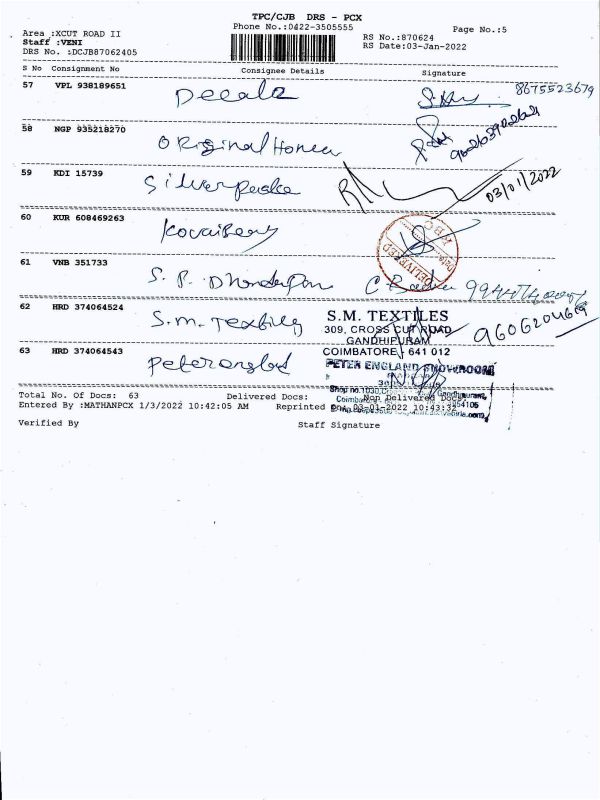 TPC/CJB DRS - PCX
Phone No.:0422-3505555
Page No.:5
Area :XCUT ROAD II
Staff :VENI
DRS No. :DCJB87062405
RS No.:870624
RS Date:03-Jan-2022
S No Consignment No Consignee Details Signature
57 VPL 938189651 Decala 8675523679
58 NGP 935218270 Original Homeu
59 KDI 15739 Silverpaska 03/01/2022
60 KUR 608469263 KovaiBeary DELIVERED
61 VNB 351733 S. P. Dhandapani
62 HRD 374064524 S.m. Textiles
S.M. TEXTILES
309, CROSS CUT ROAD
GANDHIPURAM
COIMBATORE - 641 012
9606204619
63 HRD 374064543 Peterengland
PETER ENGLAND SHOWROOM
Total No. Of Docs: 63 Delivered Docs: Non Delivered Docs:
Entered By :MATHANPCX 1/3/2022 10:42:05 AM Reprinted On: 03-01-2022 10:43:32
Verified By Staff Signature